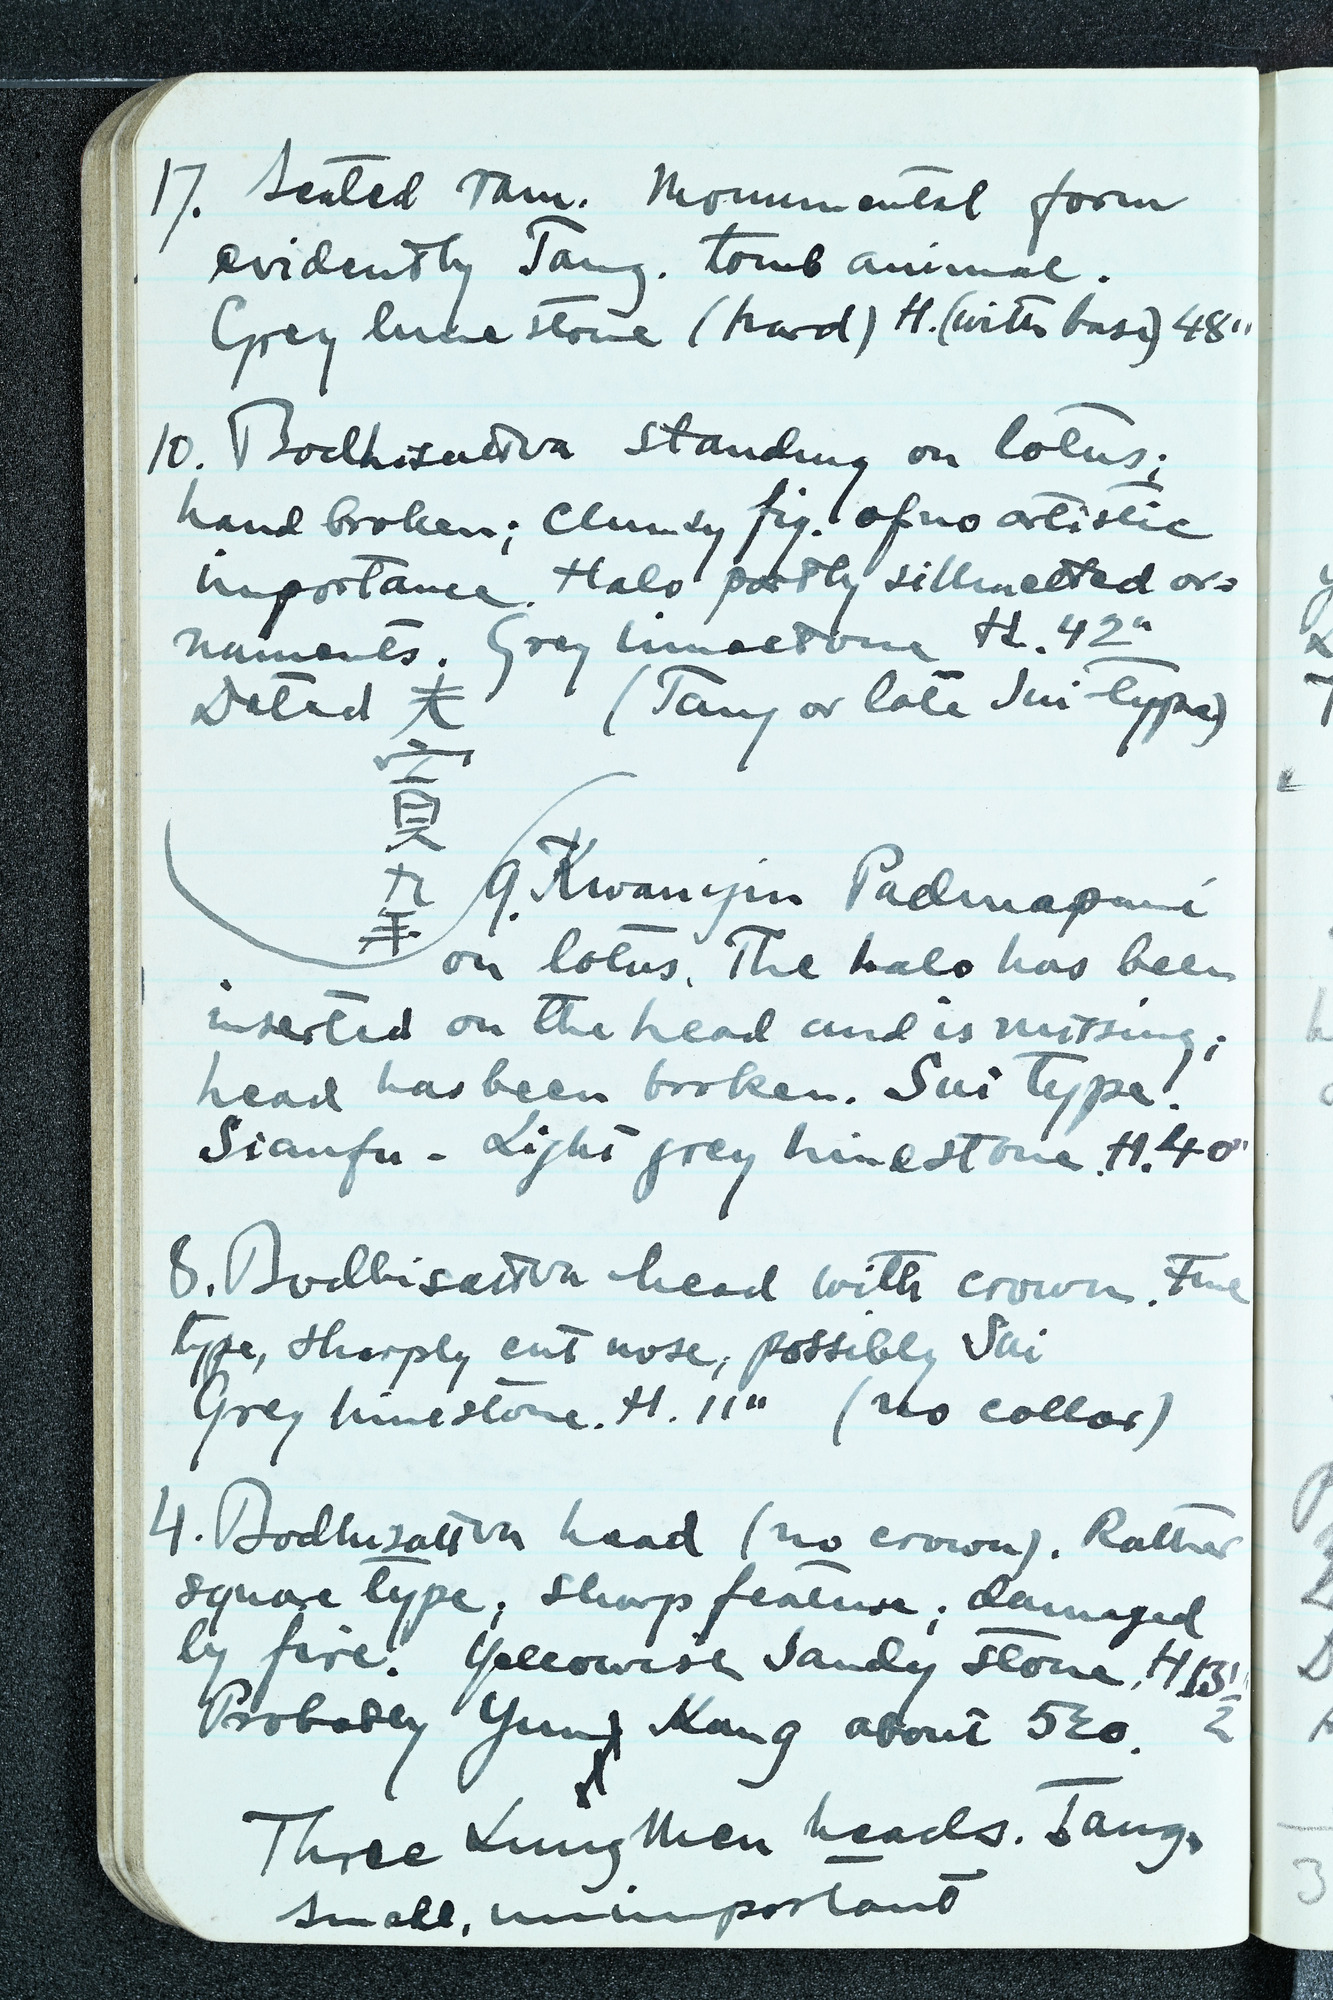 17. Seated ram. Monumental form
evidently Tang. tomb animal.
Grey limestone (hard) H. (with base) 48"
10. Bodhisattva standing on lotus;
hand broken; clumsy fig. of no artistic
importance. Halo partly silhouetted or=
naments. Grey limestone H. 42"
Dated 天 (Tang or late Sui-type)
宝
貝
九
年
9. Kwanyin Padmapani
on lotus. The halo has been
inserted on the head and is missing;
head has been broken. Sui type.
Sianfu - Light grey limestone. H. 40"
8. Bodhisattva head with crown. Fine
type, sharply cut nose, possibly Sui
Grey limestone. H. 11" (no collar)
4. Bodhisattva head (no crown). Rather
square type; sharp feature; damaged
by fire. Yellowish sandy stone. H 13½"
Probably Yun Kang about 520.
Three Lung Men heads. Tang.
small, unimportant